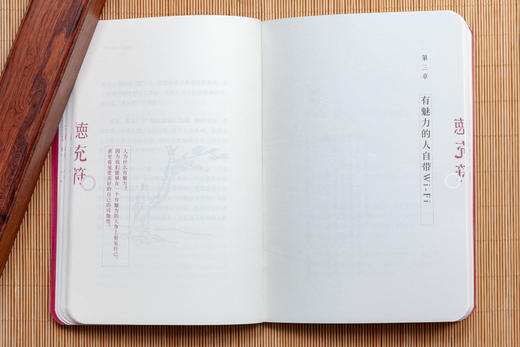 德充符
第三章
有魅力的人自带Wi-Fi
人为什么有魅力？
因为我们能够在一个有魅力的人身上看见自己，
甚至看见更美好的自己的可能性。
德充符